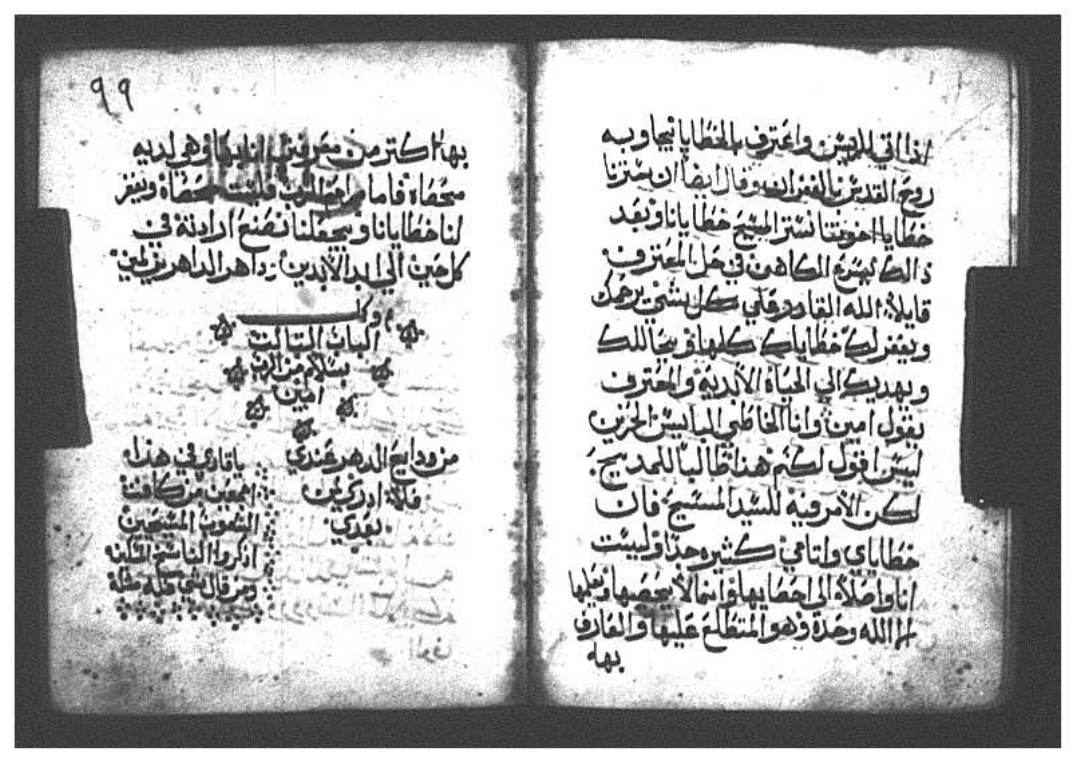 اذا اتي للابديس واعترف بالخطايا يجاوبه
روح القدس بالغفران وقال ايضاً ان سترنا
خطايا اخوتنا نستر المسيح خطايانا وبعد
ذالك يسرع الكاهن في حل المعترف
قايلاً الله القادر علي كل شي يرحمك
ويغفر لك خطاياك كلها ويخاللك
ويهديك الي الحياة الأبدية والمعترف
يقول امين وانا الخاطي البايس الحزين
ليس اقول لكم هذا طالباً للمديح
لكن الأمر فيه للسيد المسيح فان
خطاياي واتامي كثيره جداً وليست
انا واصلاً الي احصايها وانما لا يحصيها ويعلمها
الا الله وحدة وهو المتطلع عليها والعارف
بها
٩٩
بها اكتر من معرفتي انا بها وهي لديه
محصاة فاما فليت محصاة ويغفر
لنا خطايانا ويجعلنا نصنع ارادتة في
كل حين الي ابد الأبدين ودهر الداهرين امين
وكل
الباب التالت
بسلام من الرب
امين
من ودايع الدهر عندي
فلا ادري من
بعدي
يا قاري في هذا
اجمعين من كافت
الشعوب المسيحين
اذكروا الناسخ
ومن قال شي فله مثله